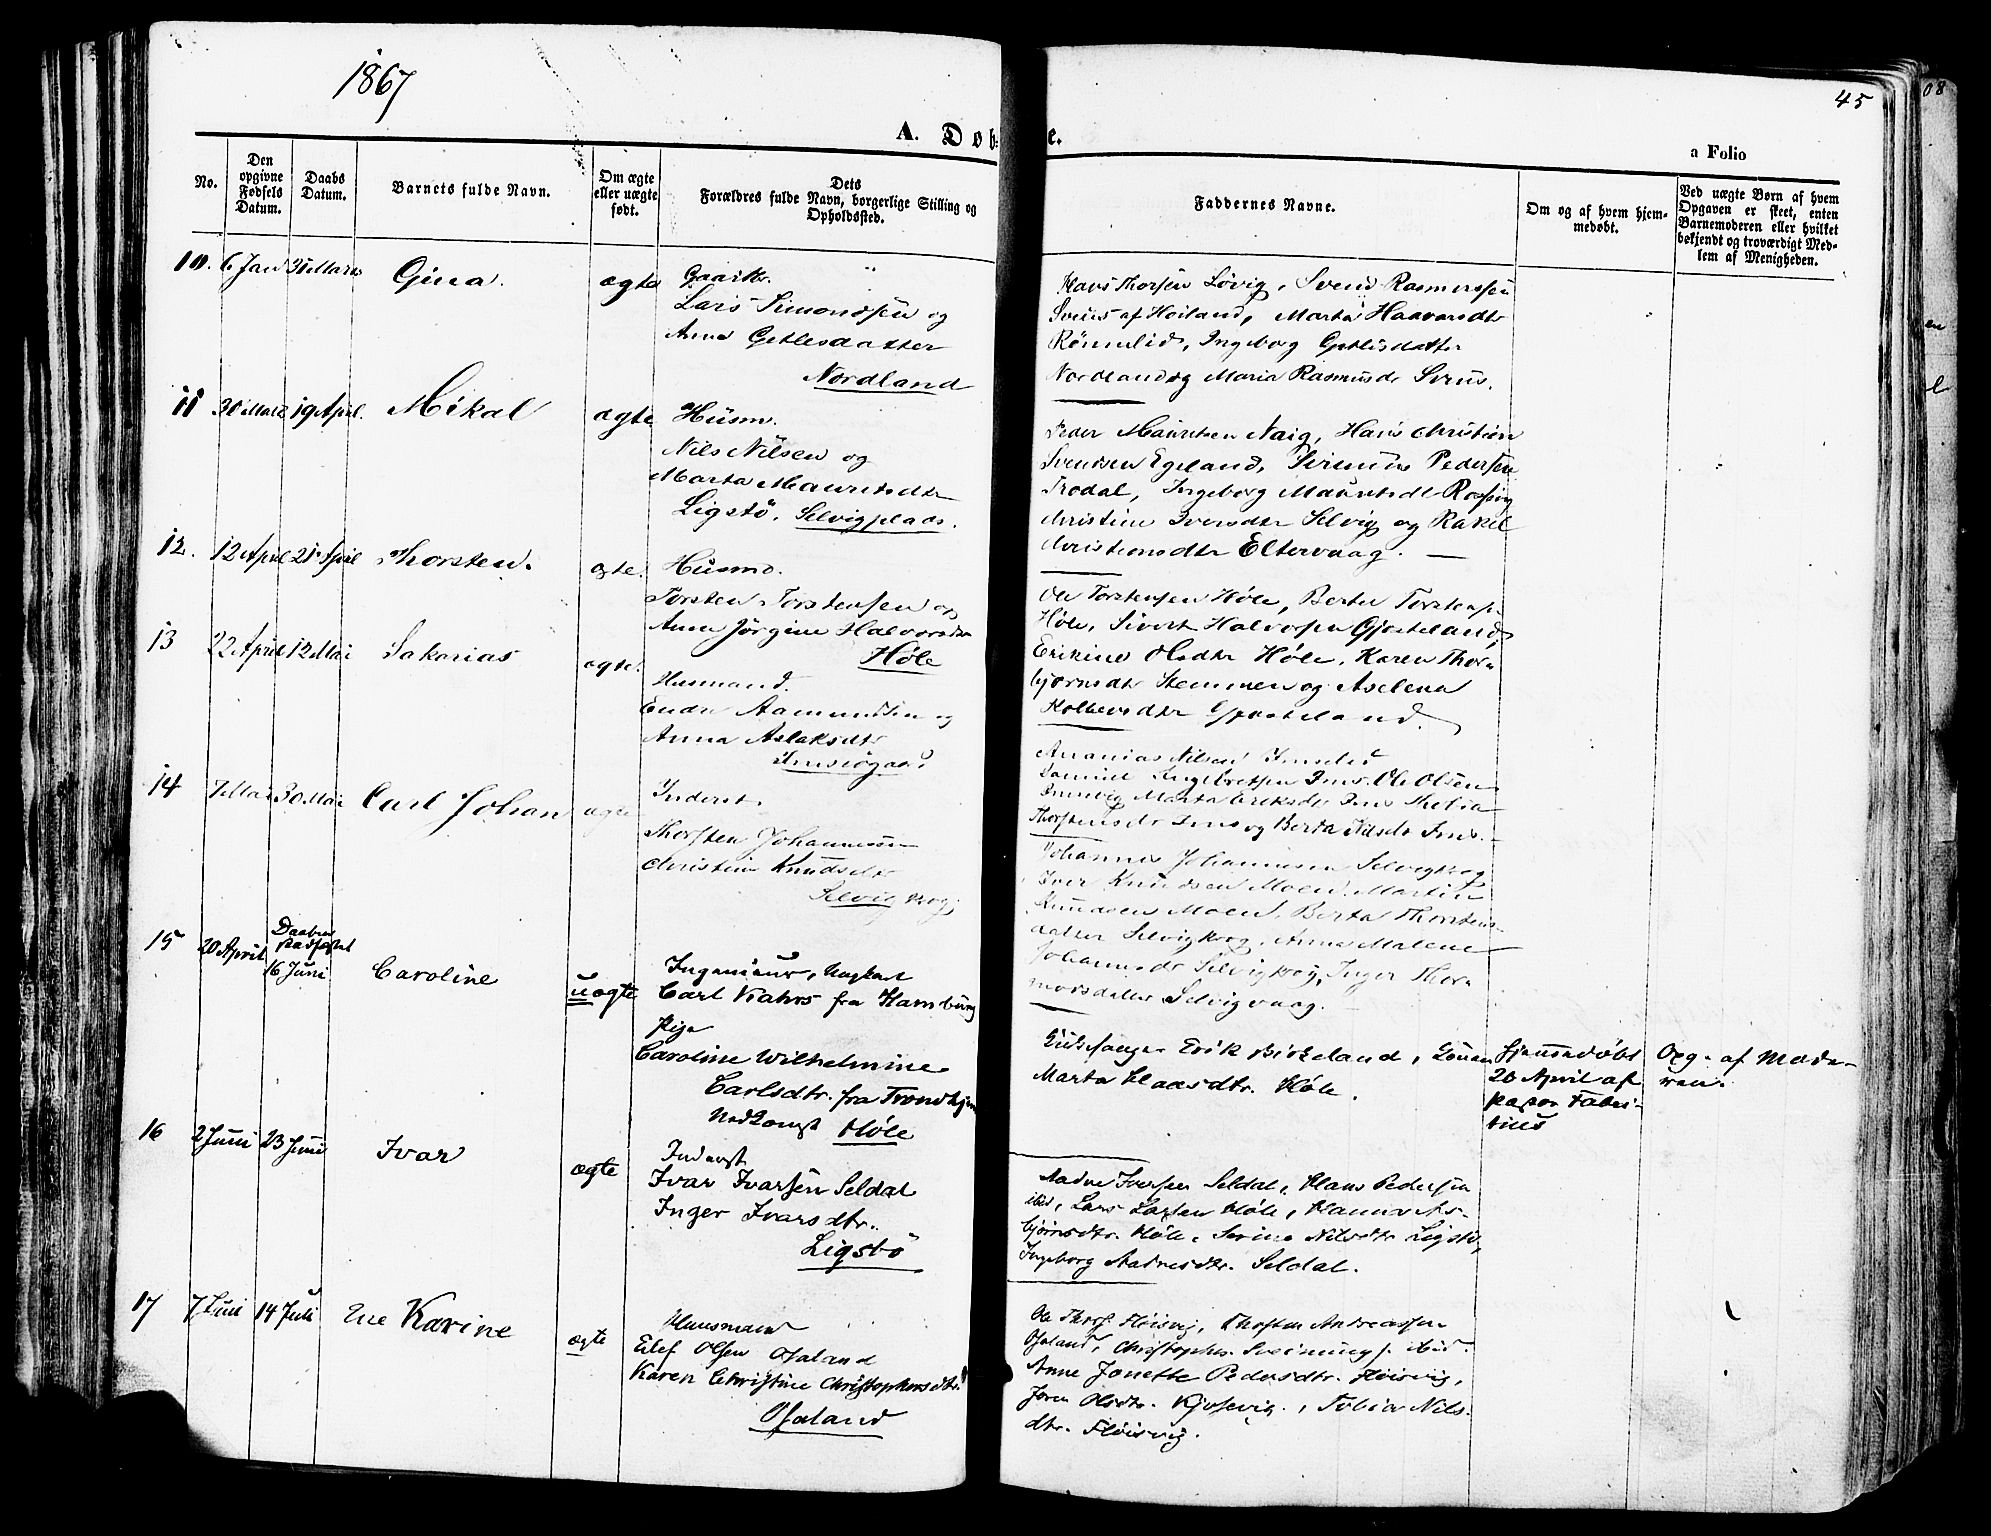 1867
45
A. Dob e.
a Folio
No.
Den opgivne Fødsels Datum.
Daabs Datum.
Barnets fulde Navn.
Om ægte eller uægte født.
Dets Forældres fulde Navn, borgerlige Stilling og Opholdssted.
Faddernes Navne.
Om og af hvem hjemmedøbt.
Ved uægte Børn af hvem Opgaven er skeet, enten Barnemoderen eller hvilket bekjendt og troværdigt Medlem af Menigheden.
10. 6 Jan 31 Marts Gina. ægte
Gaardbr.
Lars Simondsen og
Anna Getlesdatter
Nordland
Hans Thorsen Løvig, Svend Rasmussen
af Høiland, Marta Haavarsdtr
Rönnelid, Ingeborg Getlisdatter
Nordland og Maria Rasmusdr
11 30 Marts 19 April. Mikal ægte
Husm.
Nils Nilsen og
Marta Mauritsdtr
Ligstö, Selvigplads.
Peder Mauritsen Naig, Hans Christian
Svendsen Egeland, Pedersen
Frodal, Ingeborg Mauritsdt
Christine Iversdtr Selvig og Rakel
Christiansdtr Eltervaag.
12. 12 April 21 April Thorsten. ægte.
Husmd.
Torsten Torstensen og
Anne Jörgine Halvorsdtr
Høle
Ole Torstensen Høle, Berte
Høle, Sivert Halvorsen Gjesteland,
Erikine Olsdtr Høle, Karen Thor
bjørnsdtr Stemmen og Axelena
Gjesteland.
13 22 April 12 Mai Sakarias ægte.
Husmand.
Endre Aamundsen og
Anna Aslaksdtr
Imsiøgaar
Ananias Nilsen
Ims. Ole Olsen
Marta Eriksdr Ims
Thorstensdr Ims og Berta Nilsdr Ims.
14 7 Mai 30 Mai Carl Johan ægte
Inderst.
Thorsten Johannessen
Christine Knudsdtr
Selvig krog.
Johannes Johannessen Selvigkrog
Iver Knudsen Moen, Martin
Knudsen Moen, Berta Thorstens-
datter Selvigkrog, Anna Malene
Johannesdr Selvigkrog, Inger Thor
morsdatter Selvigvaag.
15 20 April Daaben stadfæstet 16 Juni Caroline uægte
Ingenieur, Ungkarl
Carl Kahrs fra Hamburg
Pige
Caroline Wilhelmine
Carlsdtr. fra Trondhjem
Nedkomst Høle
Kirkesanger Erik Birkeland,
Marta Claasdtr. Høle.
Hjemmedøbt
20 April af
Pastor Fabri-
tius
Opg. af Mode-
ren.
16 2 Juni 23 Juni Ivar ægte
Inderst
Ivar Ivarsen Seldal
Inger Ivarsdtr.
Ligstö
Aadne Iversen Seldal, Hans Pedersen
ibid, Lars Larsen Høle, Hanna As-
bjørnsdtr. Høle, Serine Nilsdtr Ligstö,
Ingeborg Aadnesdtr. Seldal.
17 7 Juni 14 Juli Ene Karine ægte
Huusmand
Elef Olsen Ofaland
Karen Christine Christophersdtr.
Ofaland
Ole Thors. Fløisvig, Thorsten Andreassen
Ofaland, Christopher Sveinungs. ibid.
Anne Jonette Pedersdtr. Fløisvig,
Olsdtr. Kjosevig, Tobia Nils-
dtr. Fløisvig.
08
en